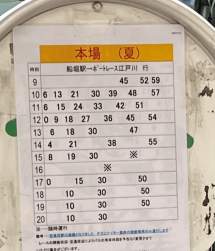 本場 (夏)
時刻 船堀駅→ボートレース江戸川 行
9 45 52 59
10 6 13 21 30 39 48 57
11 6 15 24 33 42 51
12 0 9 18 27 36 45 54
13 6 18 30 47
14 4 21 38 55
15 8 19 30 ※
16 ※
17 0 15 30 50
18 10 30 50
19 10 30 50
20 10 30 50